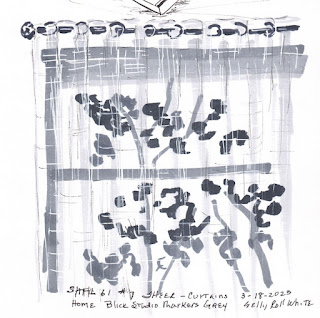 SHEEL 61 #7 SHEER - CURTAINS 3-18-2025
HOME Blick Studio Markers Grey Gelly Roll White